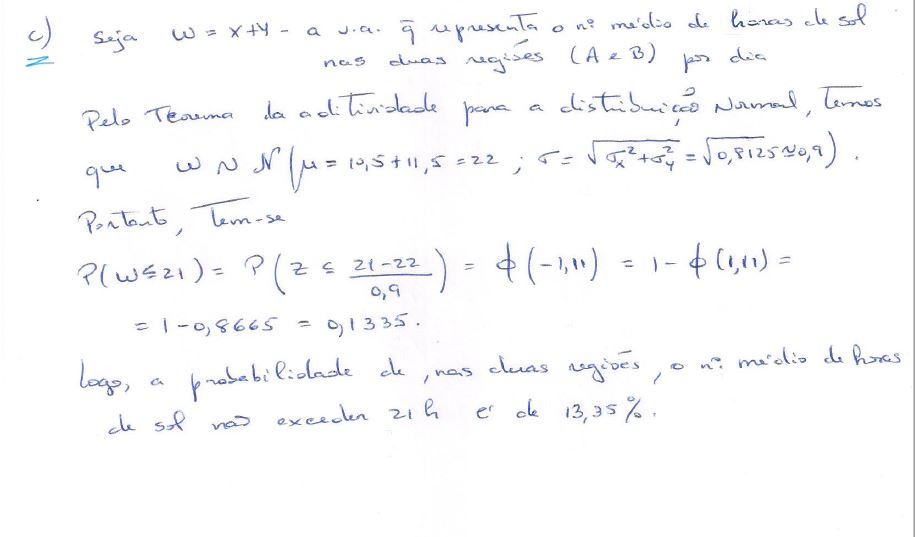 c) Seja W = X+Y - a v.a. q̄ representa o nº médio de horas de sol
nas duas regiões (A e B) por dia
Pelo Teorema da aditividade para a distribuição Normal, temos
que W ~ N (μ = 10,5+11,5 = 22 ; σ = √(σ_x² + σ_y²) = √0,8125 ≅ 0,9) .
Portanto, tem-se
P(W ≤ 21) = P( Z ≤ (21-22)/0,9 ) = ϕ(-1,11) = 1 - ϕ(1,11) =
= 1 - 0,8665 = 0,1335.
Logo, a probabilidade de, nas duas regiões, o nº médio de horas
de sol não exceder 21 h é de 13,35%.